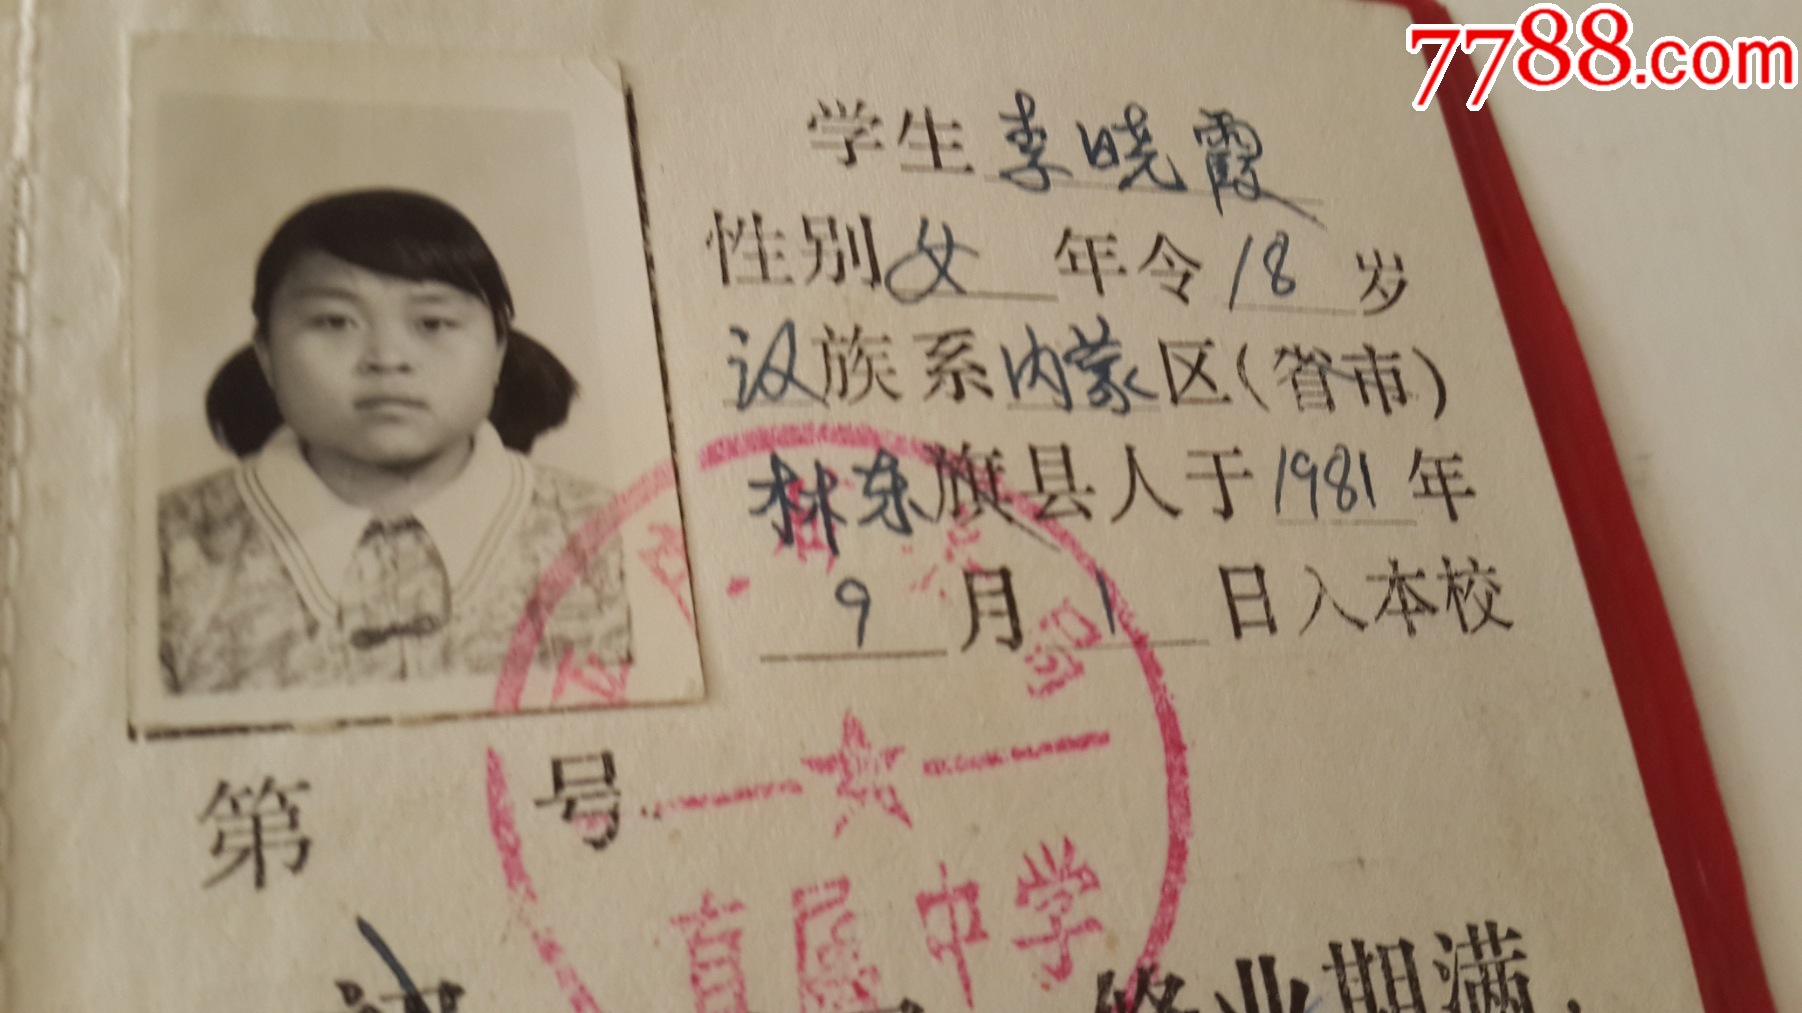 7788.com
学生李晓霞
性别女 年令18岁
汉族系内蒙区(省市)
林东旗县人于1981年
9月1日入本校
第 号
直属中学
修业期满,